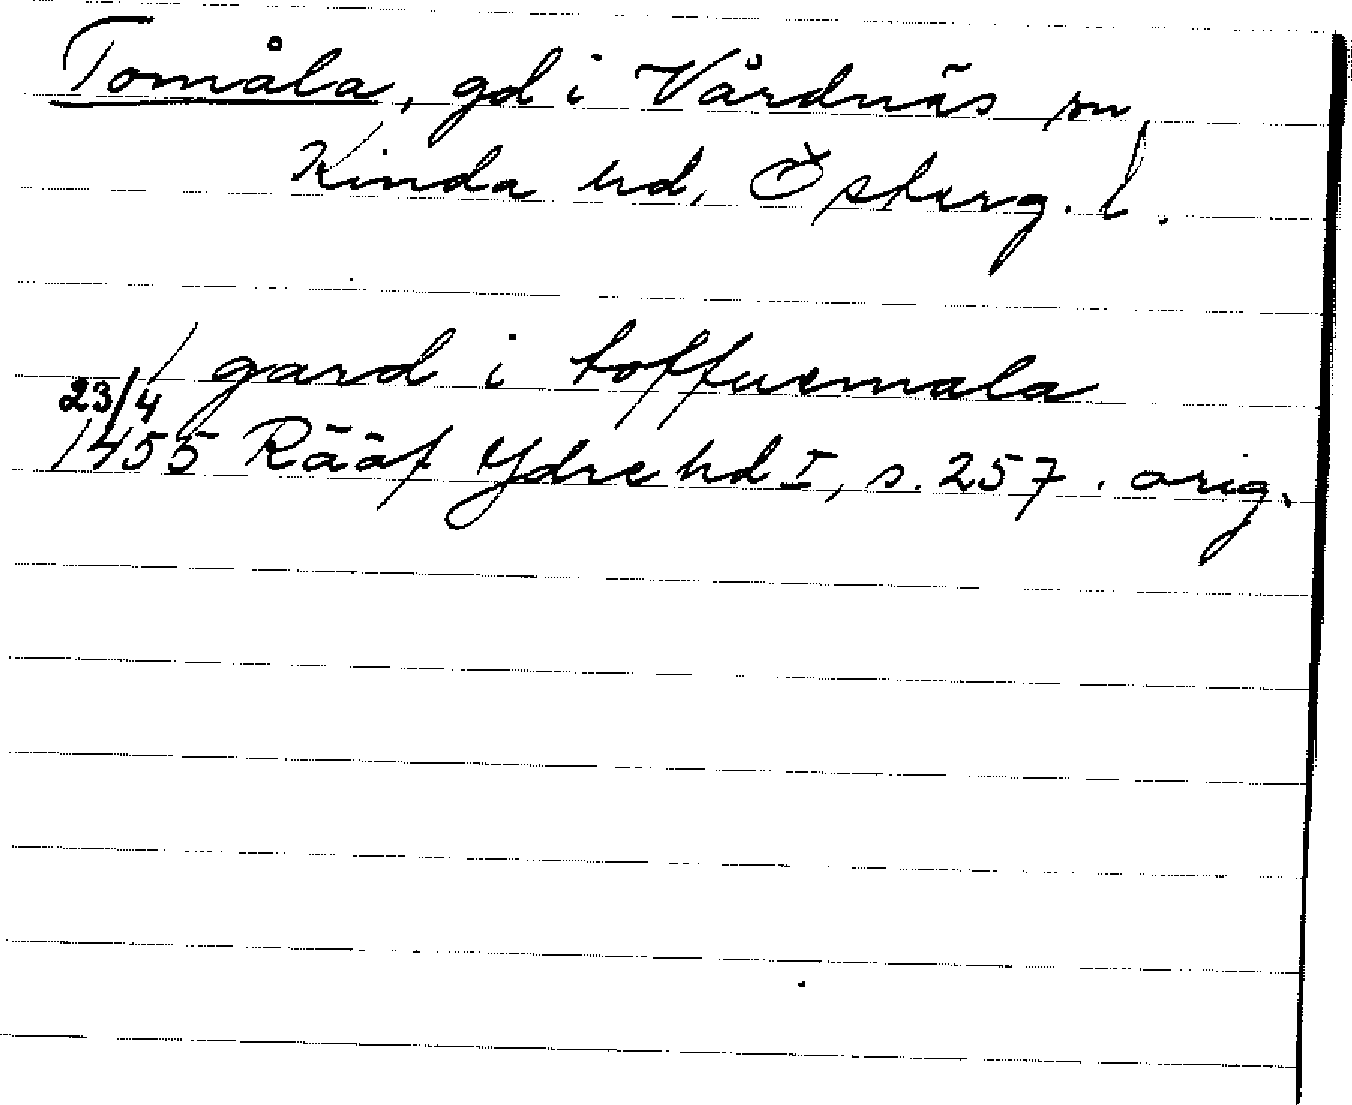 Tomåla, gd i Vårdnäs sn
Kinda hd, Österg. l.
1 gard i toffuemala
23/4
1455 Rääf Ydre hd I, s. 257. orig.